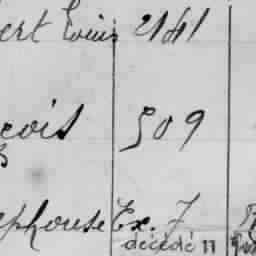 ert Louis 2141
çois 509
ephouse Ex. 7
décédé 11